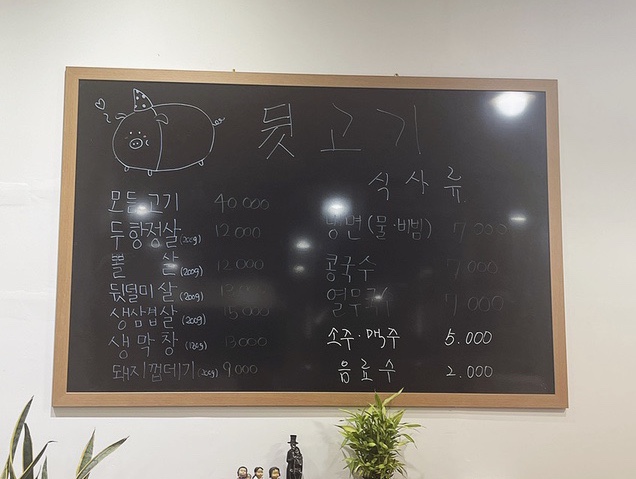 뒷고기
모듬고기 40.000
두항정살(200g) 12.000
뽈살(200g) 12.000
뒷덜미살(200g)
생삼겹살(200g) 15.000
생막창 13.000
돼지껍데기(200g) 9.000
식사류
냉면(물·비빔) 7.000
콩국수 7.000
7.000
소주·맥주 5.000
음료수 2.000